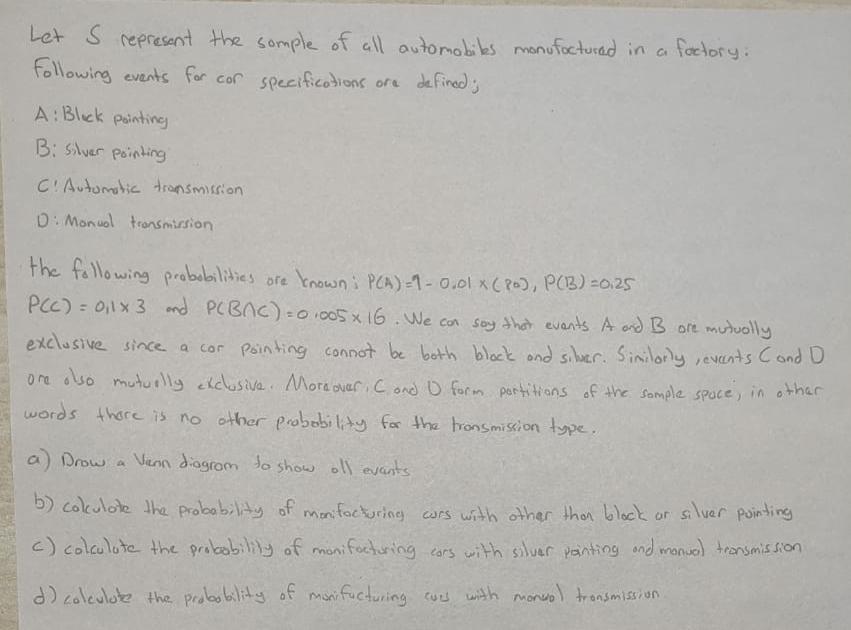 Let S represent the sample of all automobiles manufactured in a factory:
Following events for car specifications are defined;
A: Black painting
B: Silver painting
C: Automatic transmission
D: Manual transmission
the following probabilities are known: P(A)=1-0.01x(90), P(B)=0,25
P(C) = 0,1x3 and P(B∩C)=0.005x16. We can say that events A and B are mutually
exclusive since a car painting cannot be both black and silver. Similarly, events C and D
are also mutually exclusive. Moreover, C and D form partitions of the sample space, in other
words there is no other probability for the transmission type.
a) Draw a Venn diagram to show all events
b) calculate the probability of manifacturing cars with other than black or silver painting
c) calculate the probability of manifacturing cars with silver painting and manual transmission
d) calculate the probability of manifacturing cars with manual transmission.